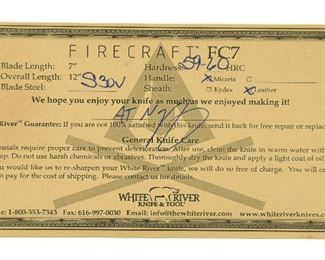 FIRECRAFT FC7
Blade Length: 7" Hardness: 59-60 HRC
Overall Length: 12" Handle: Micarta
Blade Steel: S30V Sheath: Kydex Leather
We hope you enjoy your knife as much as we enjoyed making it!
River™ Guarantee: If you are not 100% satisfied with this knife, send it back for free repair or replac
General Knife Care
metals require proper care to prevent deterioration. After use, clean the knife in warm water with
ap. Do not use harsh chemicals or abrasives. Thoroughly dry the knife and apply a light coat of oil.
ou would like us to re-sharpen your White River™ knife, we will do so free of charge. You are o
pay for the cost of shipping. Please visit our website for details.
WHITE RIVER
KNIFE & TOOL
e: 1-800-353-7343 Fax: 616-997-0030 Email: info@thewhiteriver.com www.whiteriverknives.c